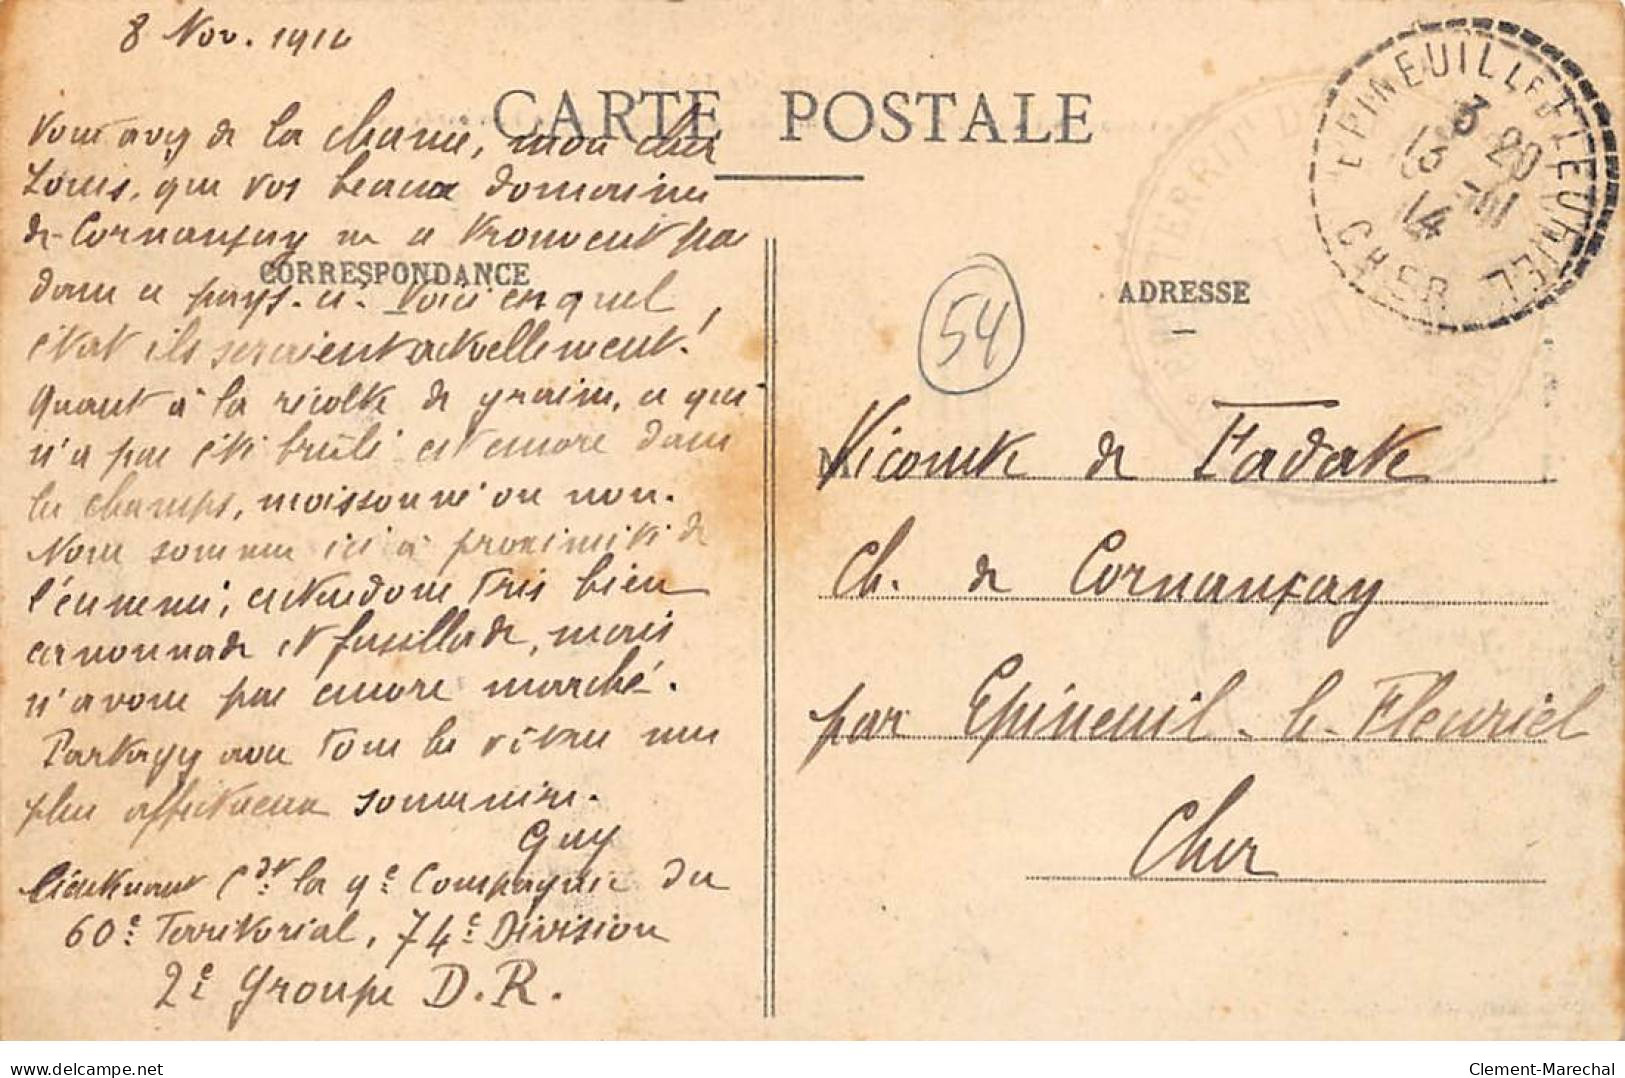 8 Nov. 1914
CARTE POSTALE
Vous avez de la chance, mon cher
Louis, que vos beaux domaines
de Cornançay ne se trouvent pas
dans ce pays-ci. Voici en quel
CORRESPONDANCE
état ils seraient actuellement!
Quant à la récolte de grains, ce qui
n'a pas été brûlé est encore dans
les champs, moissonné ou non.
Nous sommes ici à proximité de
l'ennemi, entendons très bien
canonnade et fusillade, mais
n'avons pas encore marché.
Partagez avec tous les vôtres mes
plus affectueux souvenirs.
Guy
Lieutenant Cdt la 9e Compagnie du
60e Territorial, 74e Division
2e Groupe D.R.
54
ADRESSE
EPINEUIL LE FLEURIEL
3 20
13 XII
14
CHER
TERRIT
Vicomte de
Ch. de Cornançay
par Epineuil-le-Fleuriel
Cher
delcampe.net
Clement-Marechal